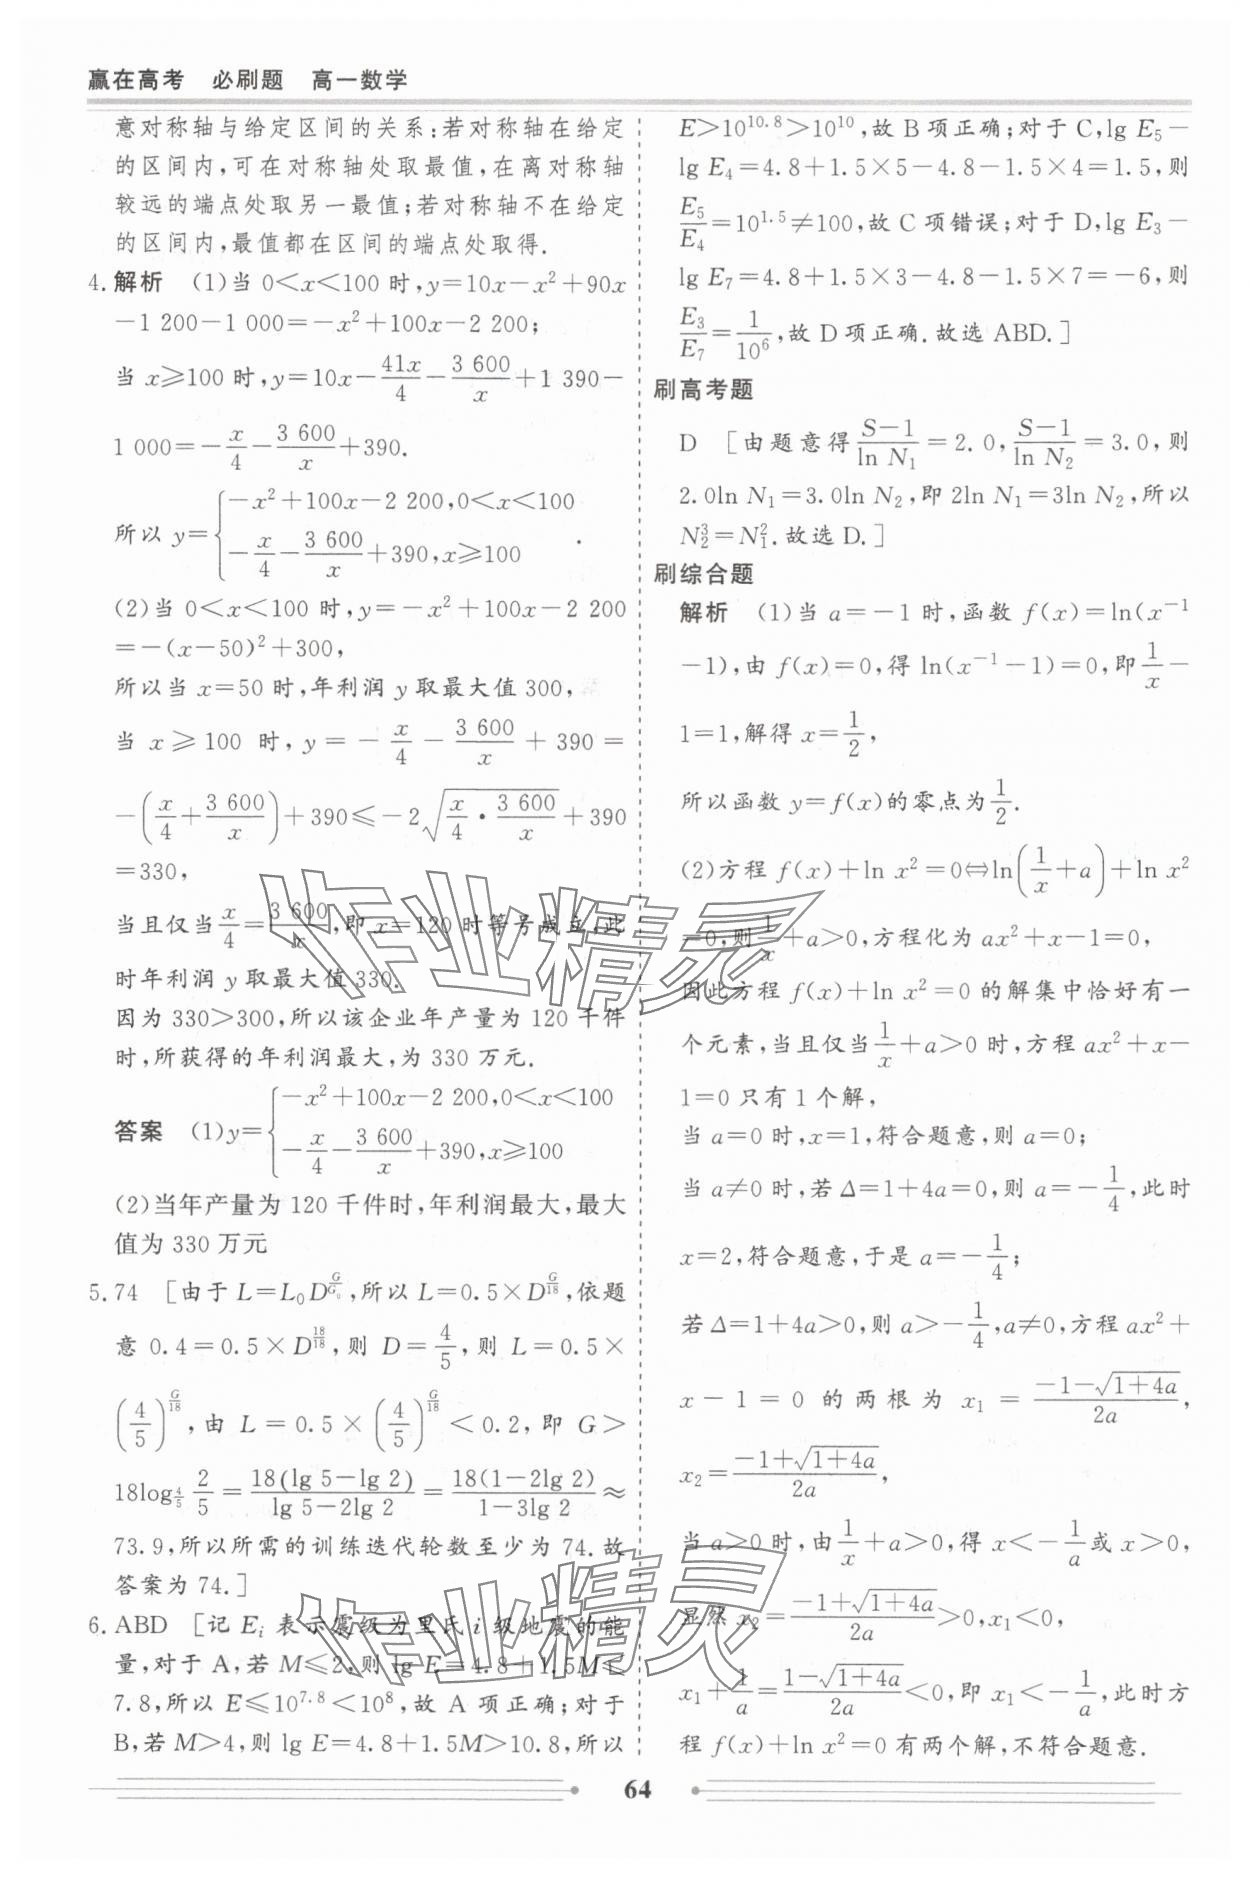 赢在高考 必刷题 高一数学
意对称轴与给定区间的关系:若对称轴在给定
的区间内,可在对称轴处取最值,在离对称轴
较远的端点处取另一最值;若对称轴不在给定
的区间内,最值都在区间的端点处取得.
4. 解析 (1)当 0<x<100 时,y=10x-x²+90x
-1 200-1 000=-x²+100x-2 200;
当 x≥100 时,y=10x-\frac{41x}{4}-\frac{3 600}{x}+1 390-
1 000=-\frac{x}{4}-\frac{3 600}{x}+390.
所以 y=\begin{cases}-x²+100x-2 200,0<x<100\\-\frac{x}{4}-\frac{3 600}{x}+390,x≥100\end{cases}.
(2)当 0<x<100 时,y=-x²+100x-2 200
=-(x-50)²+300,
所以当 x=50 时,年利润 y 取最大值 300,
当 x≥100 时,y=-\frac{x}{4}-\frac{3 600}{x}+390=
-(\frac{x}{4}+\frac{3 600}{x})+390≤-2\sqrt{\frac{x}{4}·\frac{3 600}{x}}+390
=330,
当且仅当\frac{x}{4}=\frac{3 600}{x},即 x=120 时等号成立,此
时年利润 y 取最大值 330.
因为 330>300,所以该企业年产量为 120 千件
时,所获得的年利润最大,为 330 万元.
答案 (1)y=\begin{cases}-x²+100x-2 200,0<x<100\\-\frac{x}{4}-\frac{3 600}{x}+390,x≥100\end{cases}
(2)当年产量为 120 千件时,年利润最大,最大
值为 330 万元
5. 74 [由于 L=L_0D^{\frac{G}{G_0}},所以 L=0.5×D^{\frac{G}{18}},依题
意 0.4=0.5×D^{\frac{18}{18}},则 D=\frac{4}{5},则 L=0.5×
(\frac{4}{5})^{\frac{G}{18}},由 L=0.5×(\frac{4}{5})^{\frac{G}{18}}<0.2,即 G>
18log_{\frac{4}{5}}\frac{2}{5}=\frac{18(lg 5-lg 2)}{lg 5-2lg 2}=\frac{18(1-2lg 2)}{1-3lg 2}≈
73.9,所以所需的训练迭代轮数至少为 74.故
答案为 74.]
6. ABD [记 E_i 表示震级为里氏 i 级地震的能
量,对于 A,若 M≤2,则 lg E=4.8+1.5M≤
7.8,所以 E≤10^{7.8}<10^8,故 A 项正确;对于
B,若 M>4,则 lg E=4.8+1.5M>10.8,所以
E>10^{10.8}>10^{10},故 B 项正确;对于 C,lg E_5-
lg E_4=4.8+1.5×5-4.8-1.5×4=1.5,则
\frac{E_5}{E_4}=10^{1.5}≠100,故 C 项错误;对于 D,lg E_3-
lg E_7=4.8+1.5×3-4.8-1.5×7=-6,则
\frac{E_3}{E_7}=\frac{1}{10^6},故 D 项正确.故选 ABD.]
刷高考题
D [由题意得\frac{S-1}{ln N_1}=2.0,\frac{S-1}{ln N_2}=3.0,则
2.0ln N_1=3.0ln N_2,即 2ln N_1=3ln N_2,所以
N_2^3=N_1^2.故选 D.]
刷综合题
解析 (1)当 a=-1 时,函数 f(x)=ln(x^{-1}
-1),由 f(x)=0,得 ln(x^{-1}-1)=0,即\frac{1}{x}-
1=1,解得 x=\frac{1}{2},
所以函数 y=f(x)的零点为\frac{1}{2}.
(2)方程 f(x)+ln x²=0⇔ln(\frac{1}{x}+a)+ln x²
=0,则\frac{1}{x}+a>0,方程化为 ax²+x-1=0,
因此方程 f(x)+ln x²=0 的解集中恰好有一
个元素,当且仅当\frac{1}{x}+a>0 时,方程 ax²+x-
1=0 只有 1 个解,
当 a=0 时,x=1,符合题意,则 a=0;
当 a≠0 时,若 Δ=1+4a=0,则 a=-\frac{1}{4},此时
x=2,符合题意,于是 a=-\frac{1}{4};
若 Δ=1+4a>0,则 a>-\frac{1}{4},a≠0,方程 ax²+
x-1=0 的两根为 x_1=\frac{-1-\sqrt{1+4a}}{2a},
x_2=\frac{-1+\sqrt{1+4a}}{2a},
当 a>0 时,由\frac{1}{x}+a>0,得 x<-\frac{1}{a}或 x>0,
显然 x_2=\frac{-1+\sqrt{1+4a}}{2a}>0,x_1<0,
x_1+\frac{1}{a}=\frac{1-\sqrt{1+4a}}{2a}<0,即 x_1<-\frac{1}{a},此时方
程 f(x)+ln x²=0 有两个解,不符合题意.
64
作业精灵
作业精灵